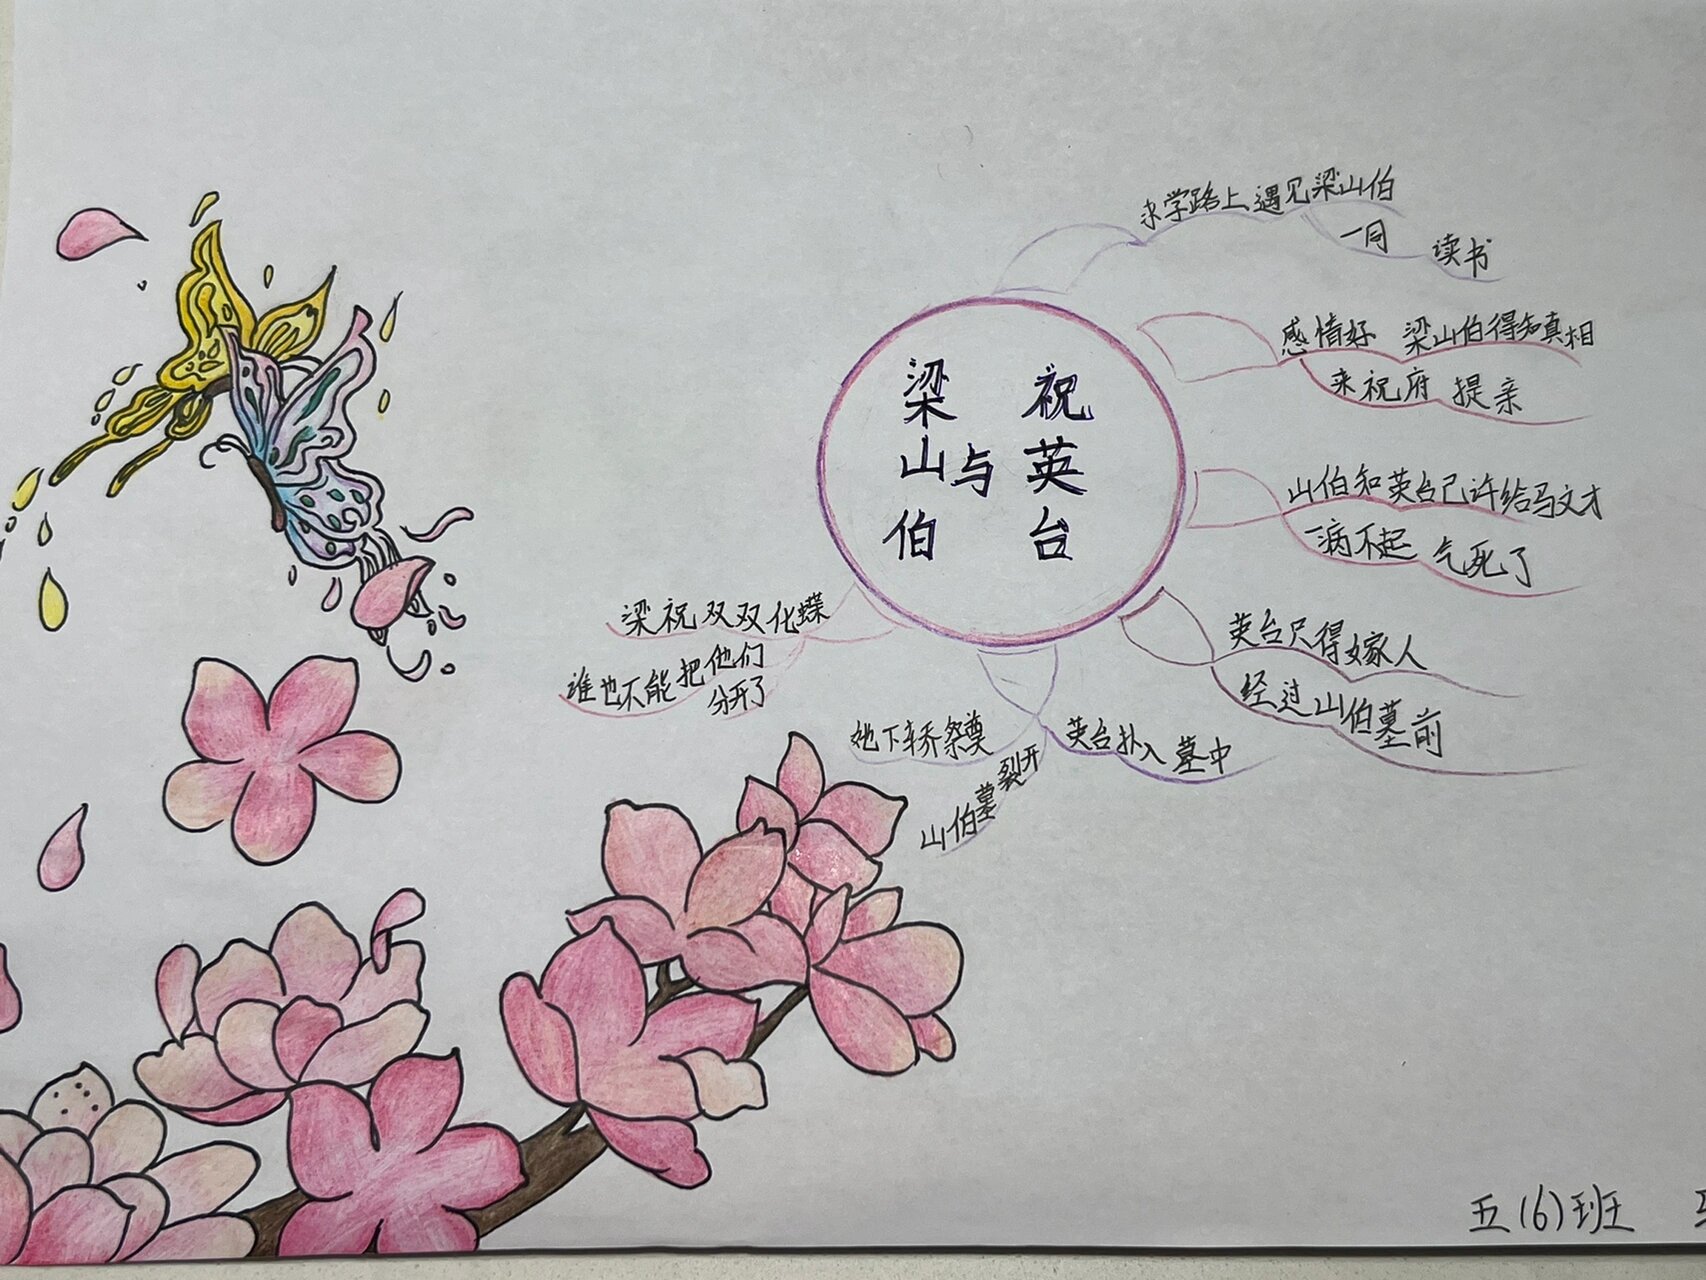 梁山伯
与
祝英台
求学路上遇见梁山伯
一同 读书
感情好 梁山伯得知真相
来祝府 提亲
山伯知英台已许给马文才
一病不起 气死了
英台只得嫁人
经过山伯墓前
英台扑入墓中
山伯墓裂开
她下轿祭奠
梁祝双双化蝶
谁也不能把他们
分开了
五(6)班